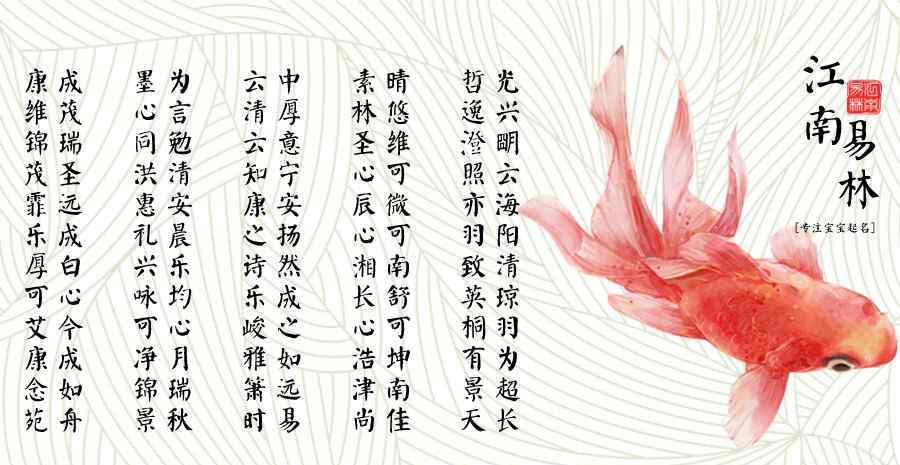 江南
易林
江南易林
[专注宝宝起名]
光兴明云海阳清琼羽为超长
哲逸澄照亦羽致英桐有景天
晴悠维可微可南舒可坤南佳
素林圣心辰心湘长心浩津尚
中厚意宁安扬然成之如远易
云清云知康之诗乐峻雅箫时
为言勉清安晨乐均心月瑞秋
墨心同洪惠礼兴咏可净锦景
成茂瑞圣远成白心今成如舟
康维锦茂霏乐厚可艾康念苑